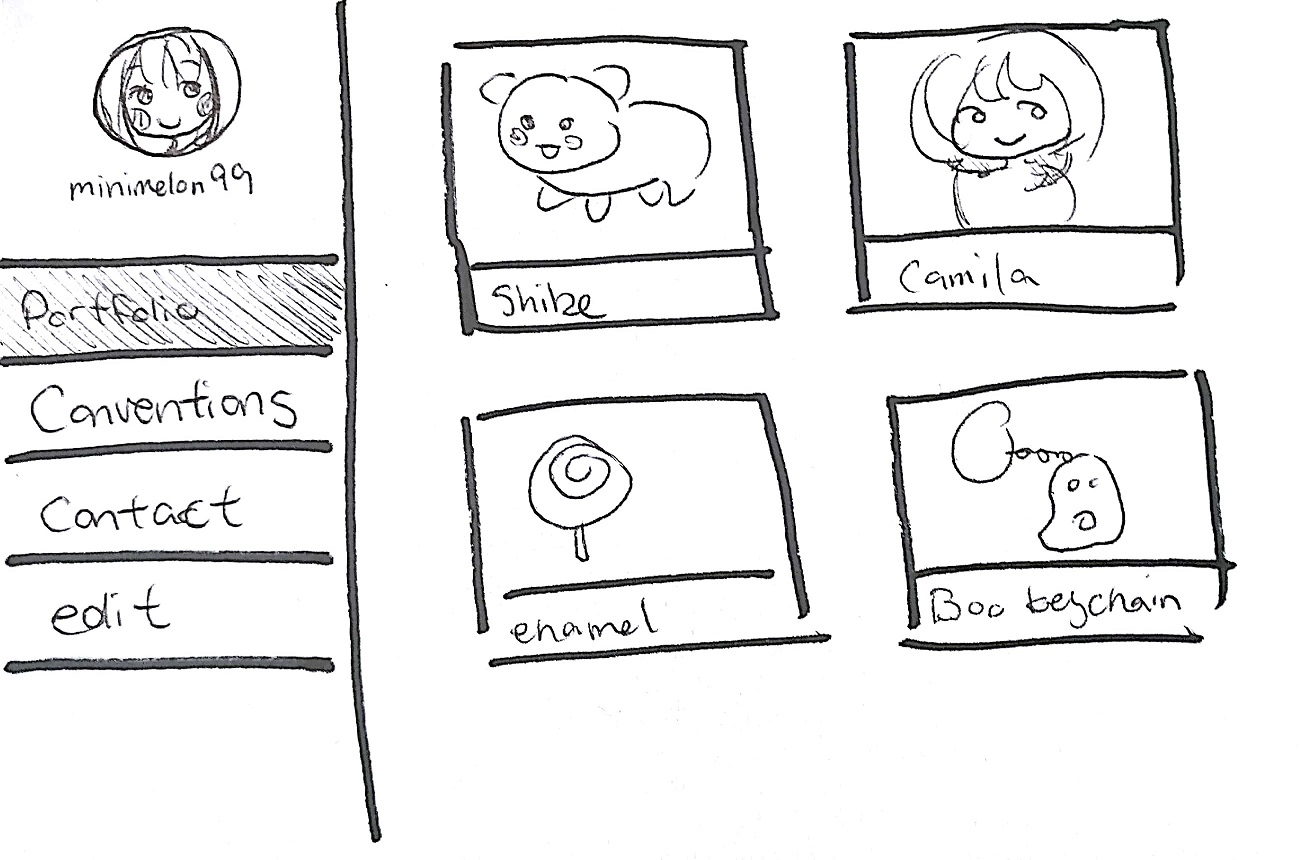 minimelon99
Portfolio
Conventions
Contact
edit
Shibe
Camila
enamel
Boo keychain